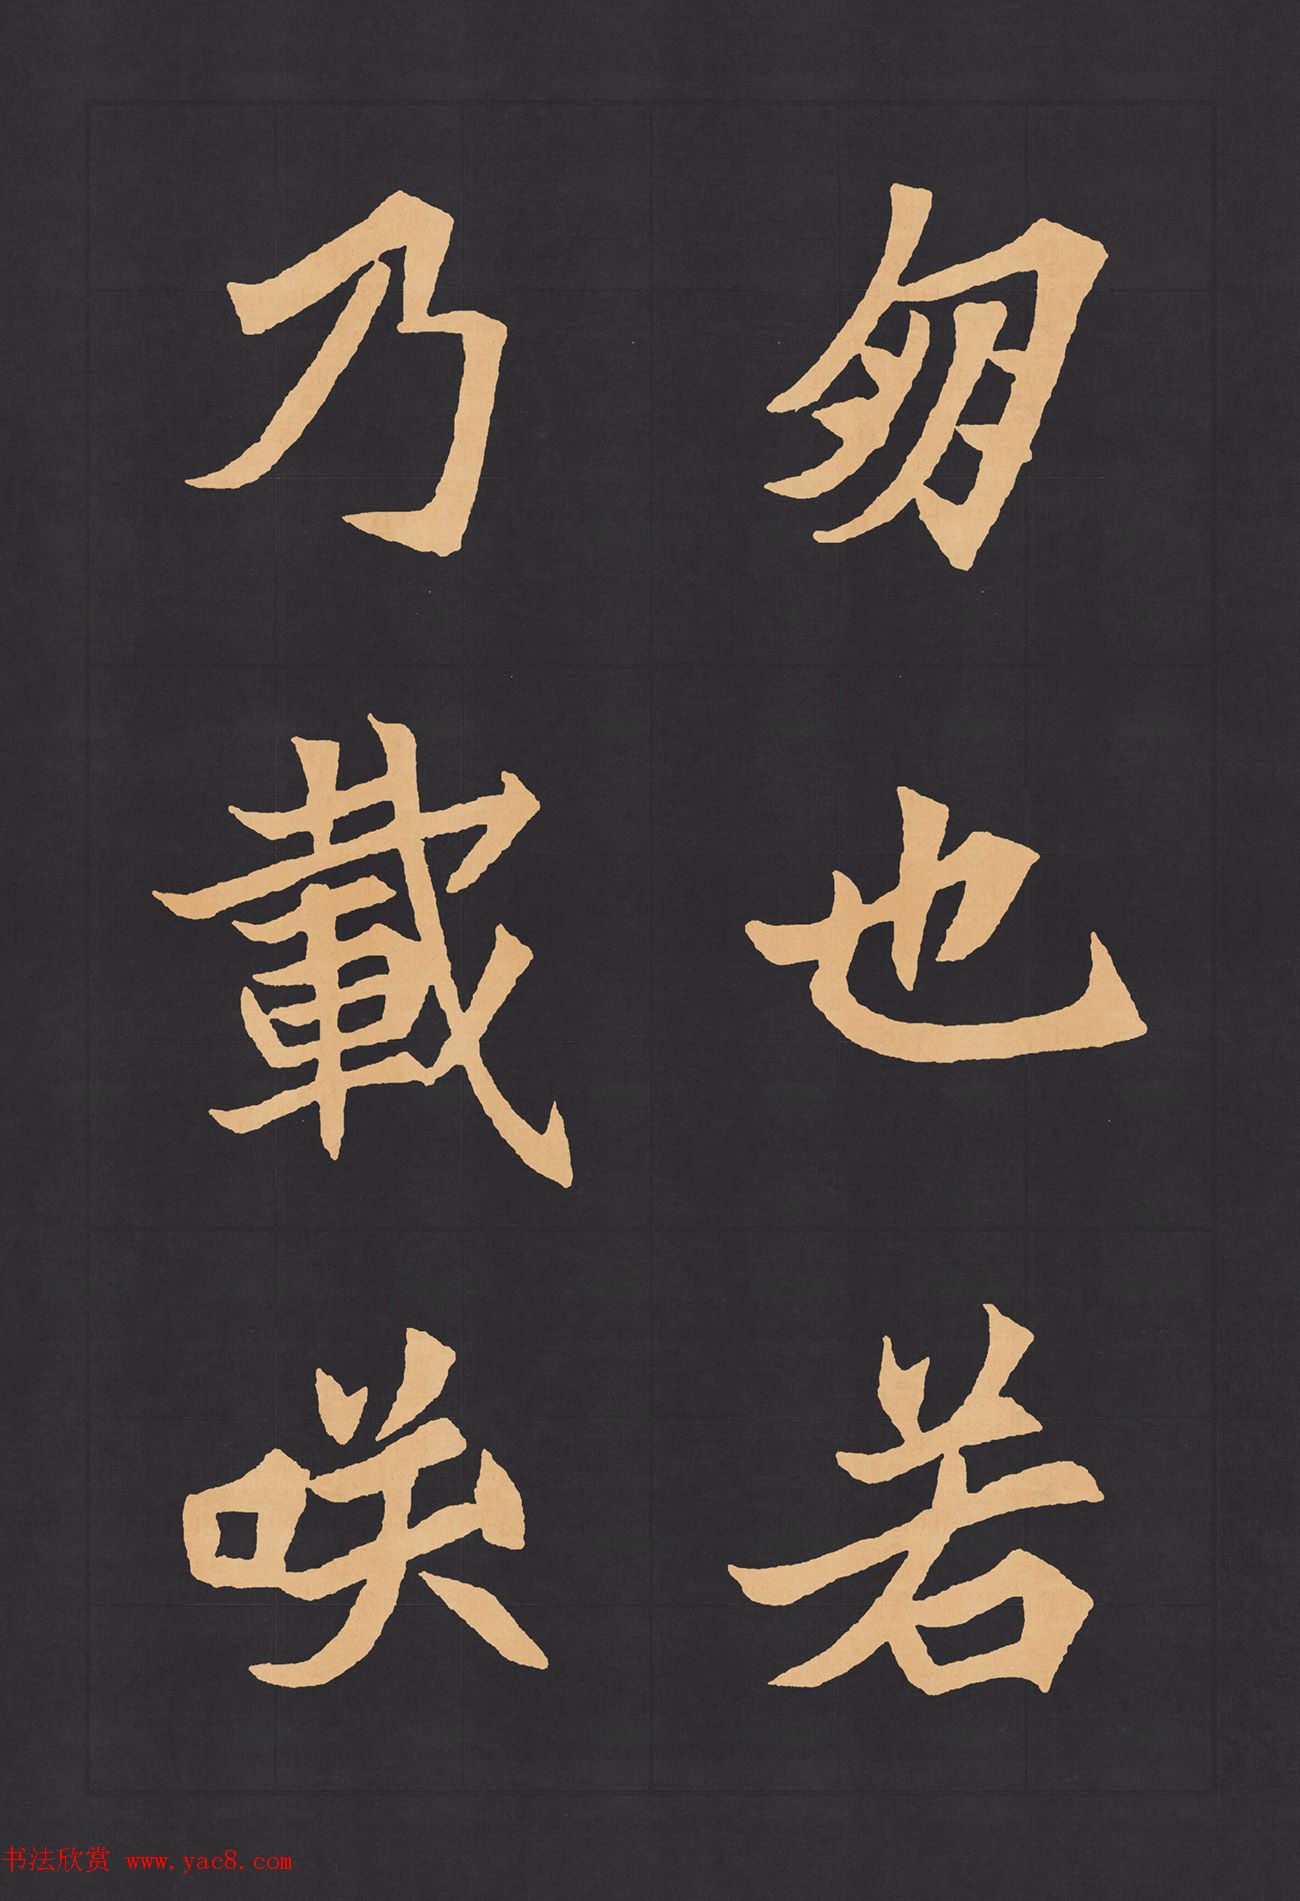 也若
乃載咲
书法欣赏 www.yac8.com